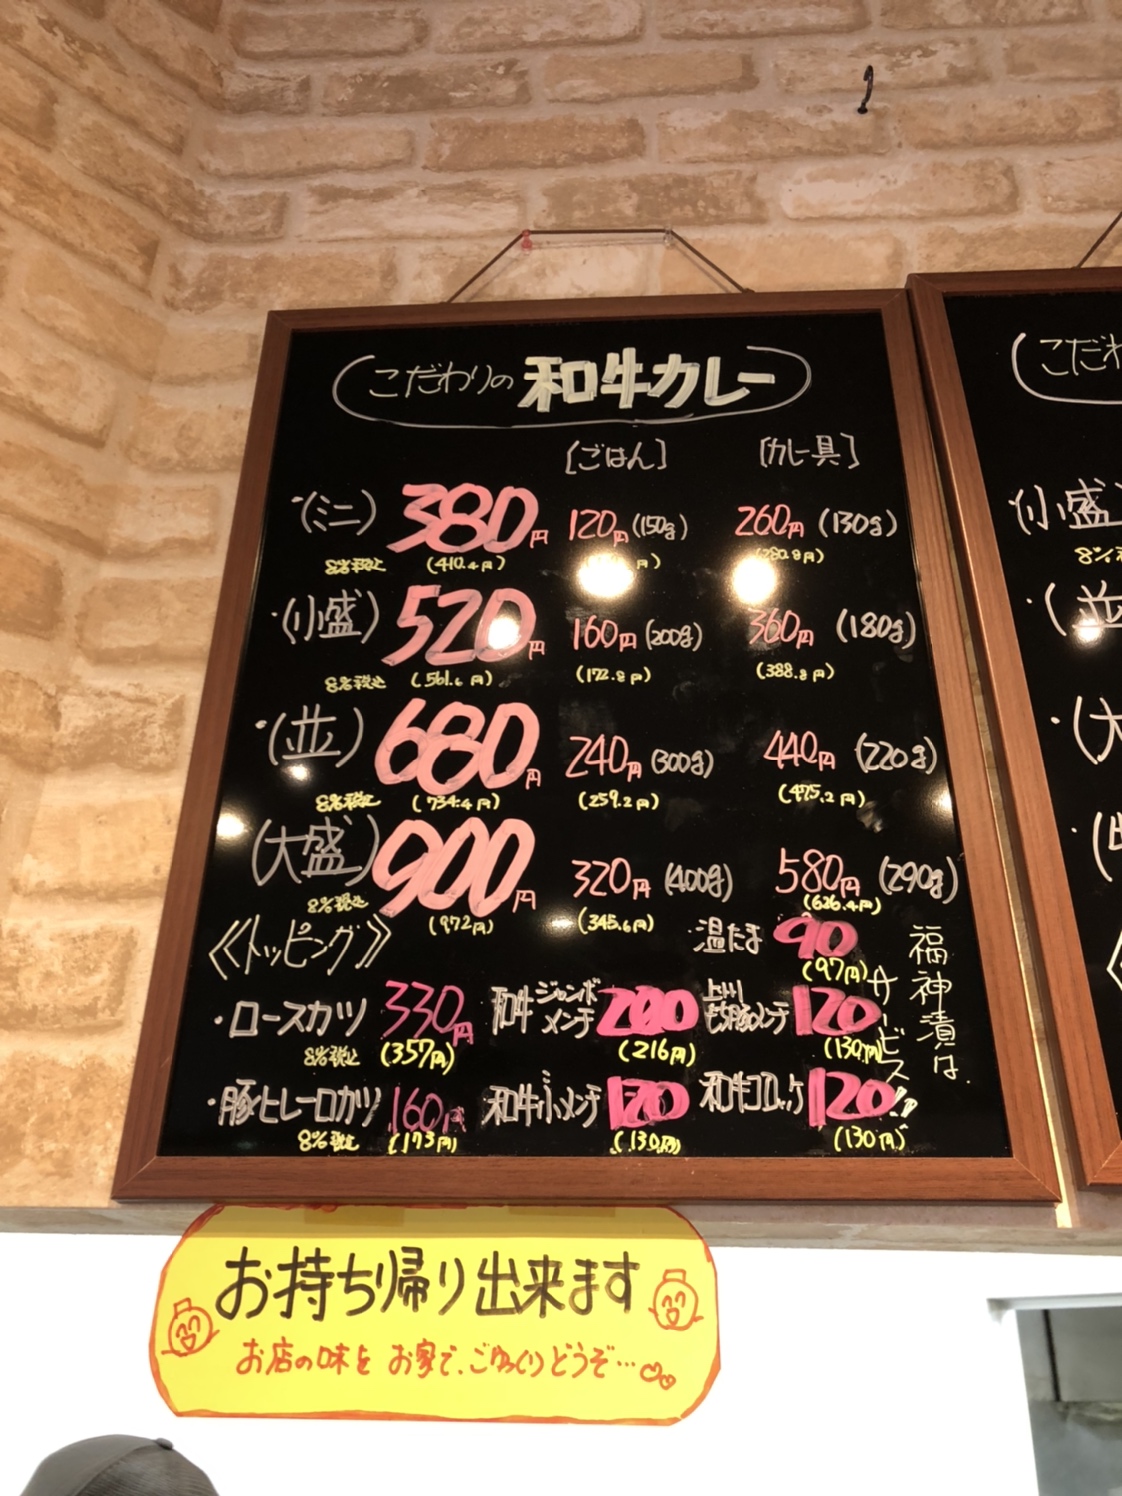 こだわりの和牛カレー
[ごはん] [カレー具]
・(ミニ) 380円 120円(150g) 260円(130g)
8%税込 (410.4円) (280.8円)
・(小盛) 520円 160円(200g) 360円(180g)
8%税込 (561.6円) (172.8円) (388.8円)
・(並) 680円 240円(300g) 440円(220g)
8%税込 (734.4円) (259.2円) (475.2円)
(大盛) 900円 320円(400g) 580円(290g)
8%税込 (972円) (345.6円) (626.4円)
《トッピング》 ・温たま 90
(97円)
・ロースカツ 330円 和牛ジャンボメンチ 200 上州もち豚メンチ 120
8%税込 (357円) (216円) (130円)
・豚ヒレ一口カツ 160円 和牛ミニメンチ 120 和牛コロッケ 120
8%税込 (173円) (130円) (130円)
福神漬は、
サービス!!
こだわ
・(小盛)
8%
・(並
・(大
お持ち帰り出来ます
お店の味を お家で、ごゆっくりどうぞ…